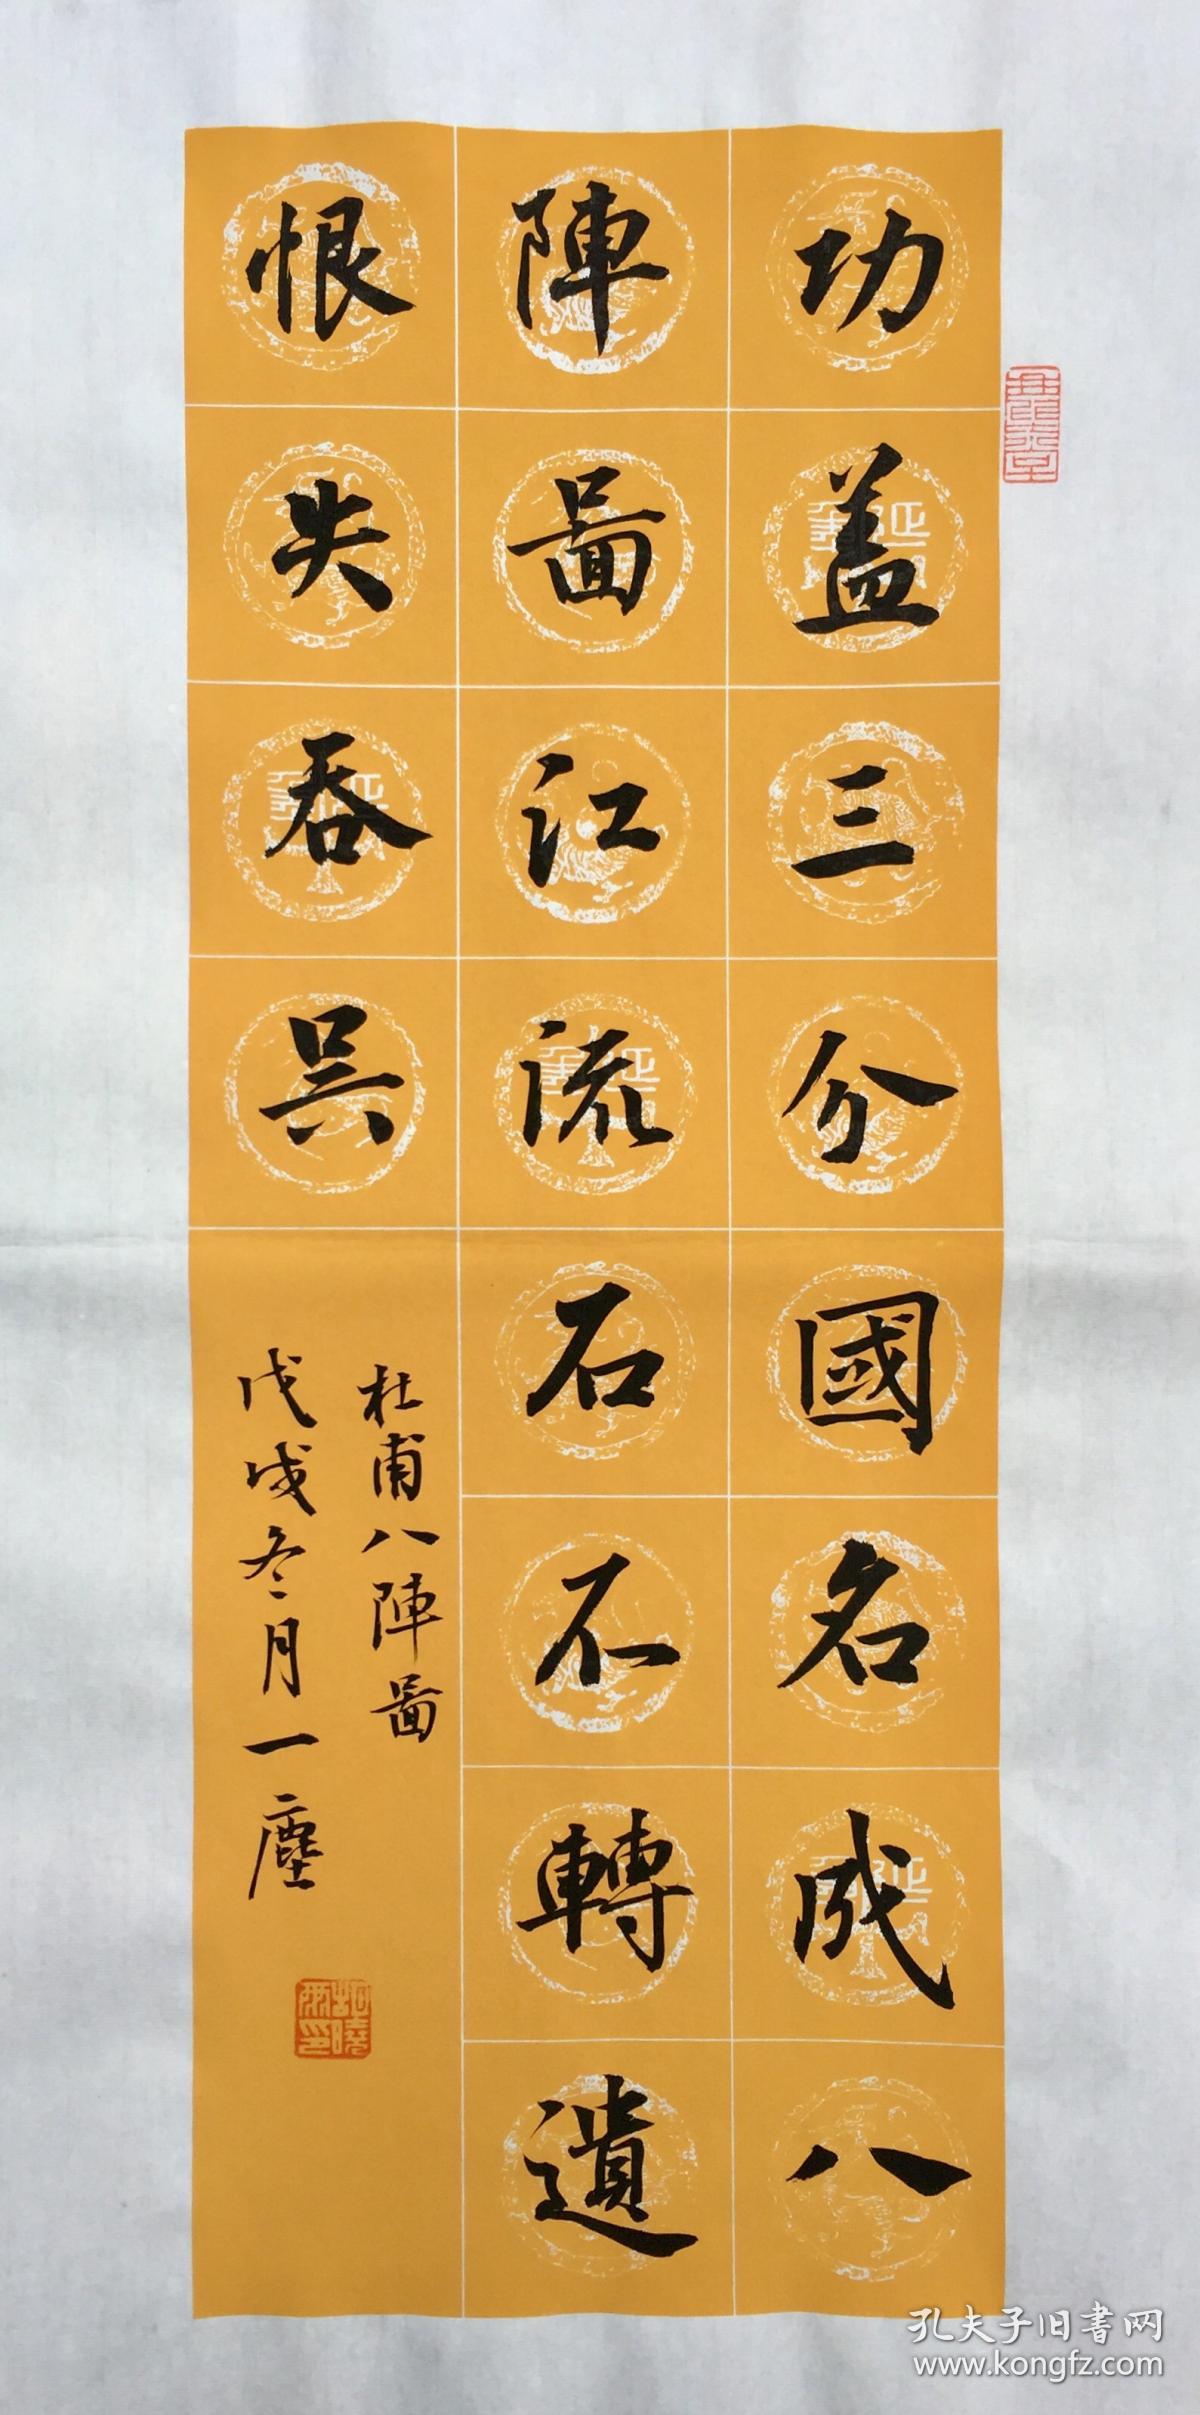 功蓋三分國名成八
陣啚江流石不轉遺
恨失吞吴
杜甫八陣啚
戊戌冬月一塵
孔夫子旧书网
www.kongfz.com